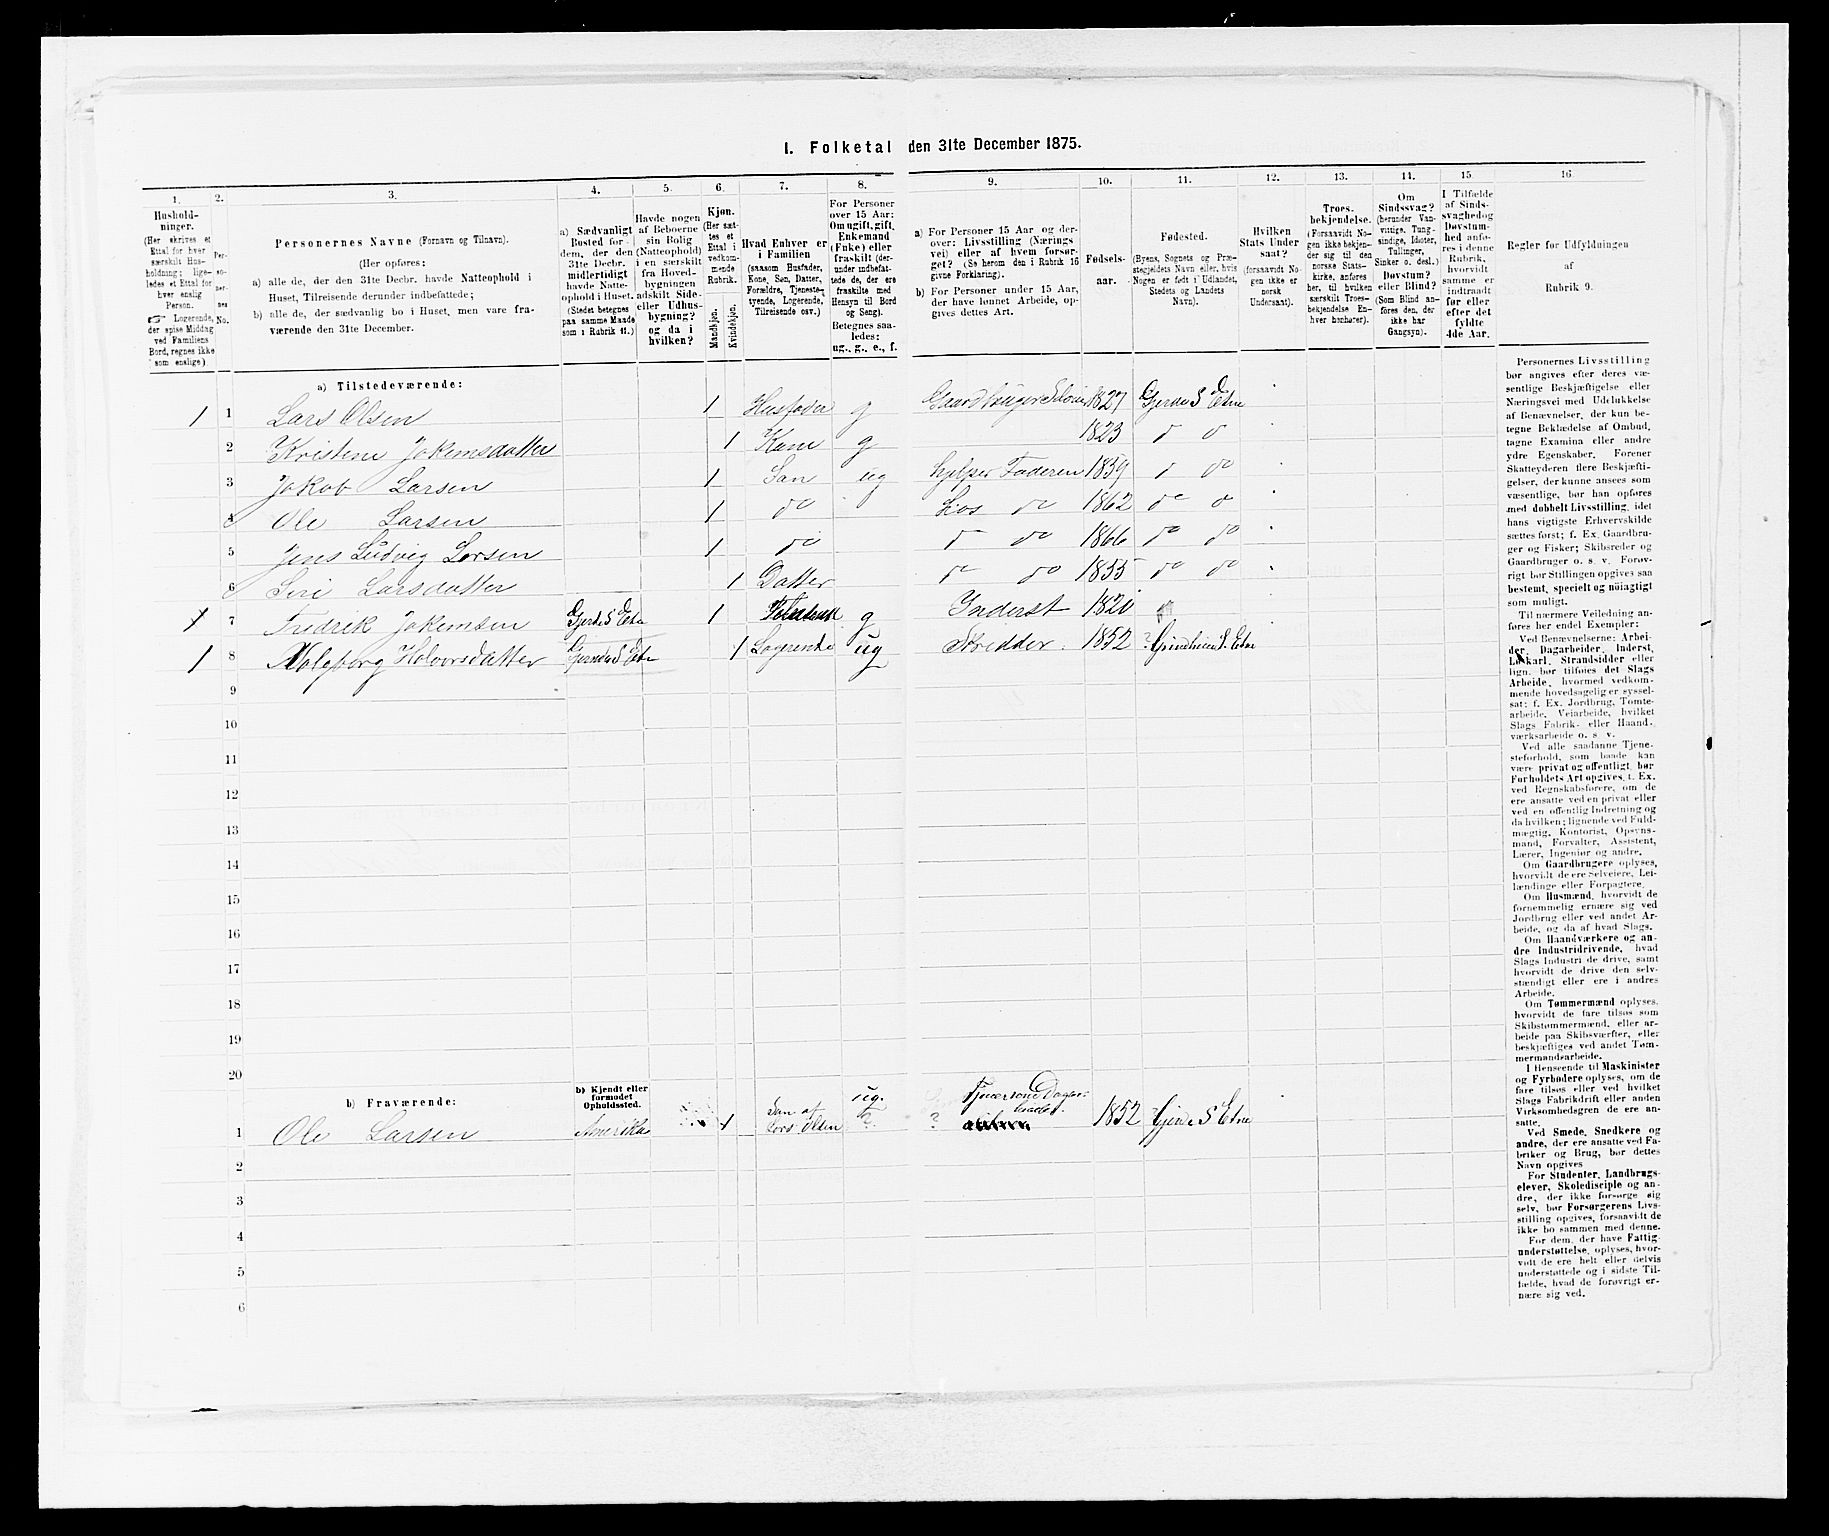 I. Folketal den 31te December 1875.
1. 2. 3. 4. 5. 6. 7. 8. 9. 10. 11. 12. 13. 14. 15. 16
Hushold-
ninger.
(Her skrives et
Ettal for hver
særskilt Hus-
holdning; lige-
ledes et Ettal for
hver enslig
Person.
☞ Logerende,
der spise Middag
ved Familiens
Bord, regnes ikke
som enslige)
Per-
so-
ner-
nes
No.
Personernes Navne (Fornavn og Tilnavn).
(Her opføres:
a) alle de, der den 31te Decbr. havde Natteophold i
Huset, Tilreisende derunder indbefattede;
b) alle de, der sædvanlig bo i Huset, men vare fra-
værende den 31te December.
a) Sædvanligt
Bosted for
dem, der den
31te Decbr.
midlertidigt
havde Natte-
ophold i Huset.
(Stedet betegnes
paa samme Maade
som i Rubrik 11.)
Havde nogen
af Beboerne
sin Bolig
(Natteophold)
i en særskilt
fra Hoved-
bygningen
adskilt Side-
eller Udhus-
bygning?
og da i
hvilken?
Kjøn.
(Her sæt-
tes et
Ettal i
vedkom-
mende
Rubrik.
Mandkjøn.
Kvindekjøn.
Hvad Enhver er
i Familien
(saasom Husfader,
Kone, Søn, Datter,
Forældre, Tjeneste-
tyende, Logerende,
Tilreisende osv.)
For Personer
over 15 Aar:
Om ugift, gift,
Enkemand
(Enke) eller
fraskilt (der-
under indbefat-
tede de, der ere
fraskilte med
Hensyn til Bord
og Seng).
Betegnes saa-
ledes:
ug., g., e., f.
a) For Personer 15 Aar og der-
over: Livsstilling (Nærings
vei) eller af hvem forsør-
get? (Se herom den i Rubrik 16
givne Forklaring).
b) For Personer under 15 Aar,
der have lønnet Arbeide, op-
gives dettes Art.
Fødsels-
aar.
Fødested.
(Byens, Sognets og Præ-
stegjeldets Navn eller, hvis
Nogen er født i Udlandet,
Stedets og Landets
Navn).
Hvilken
Stats Under
saat?
(forsaavidt No-
gen ikke er
norsk
Undersaat).
Troes-
bekjendelse.
(Forsaavidt No-
gen ikke bekjen-
der sig til den
norske Stats-
kirke, anføres
her, til hvilken
særskilt Troes-
bekjendelse En-
hver henhører).
Om
Sindssvag?
(herunder Van-
vittige, Tung-
sindige, Idioter,
Tullinger,
Sinker o. desl.)
Døvstum?
eller Blind?
(Som Blind an-
føres den, der
ikke har
Gangsyn).
I Tilfælde
af Sinds-
svaghed og
Døvstum-
hed anfø-
res i denne
Rubrik,
hvorvidt
samme er
indtraadt
før eller
efter det
fyldte
4de Aar.
Regler for Udfyldningen
af
Rubrik 9.
a) Tilstedeværende:
1 1 Lars Olsen 1 Husfader g Gaardbruger Selveier 1827 Gjerde S Etne
2 Kristine Jokimsdatter 1 Kone g 1823 do do
3 Jakob Larsen 1 Søn ug hjelper Faderen 1859 do do
4 Ole Larsen 1 do hos do 1862 do do
5 Jens Ludvig Larsen 1 do do do 1866 do do
6 Siri Larsdatter 1 Datter do do 1855 do do
7 Fredrik Jokimsen Gjerde S Etne 1 g Inderst
1 8 Holvorsdatter Gjerde S Etne 1 Logerende ug Skredder 1852 ? Grindheim S. Etne
9
10
11
12
13
14
15
16
17
18
19
20
b) Fraværende:
b) Kjendt eller
formodet
Opholdssted.
1 Ole Larsen Amerika 1 Søn af Lars Olsen ug. ? 1852 Gjerde S Etne
2
3
4
5
6
Personernes Livsstilling
bør angives efter deres væ-
sentlige Beskjæftigelse eller
Næringsvei med Udelukkelse
af Benævnelser, der kun be-
tegne Beklædelse af Ombud,
tagne Examina eller andre
ydre Egenskaber. Forener
Skatteyderen flere Beskjæfti-
gelser, der kunne ansees som
væsentlige, bør han opføres
med dobbelt Livsstilling, idet
hans vigtigste Erhvervskilde
sættes først; f. Ex. Gaardbru-
ger og Fisker; Skibsreder og
Gaardbruger o. s. v. Forøv-
rigt bør Stillingen opgives saa
bestemt, specielt og nøiagtigt
som muligt.
Til nærmere Veiledning an-
føres her endel Exempler:
Ved Benævnelserne: Arbei-
der, Dagarbeider, Inderst,
Løskarl, Strandsidder eller
lign. bør tilføies det Slags
Arbeide, hvormed vedkom-
mende hovedsagelig er syssel-
sat; f. Ex. Jordbrug, Tomte-
arbeide, Veiarbeide, hvilket
Slags Fabrik- eller Haand-
værksarbeide o. s. v.
Ved alle saadanne Tjene-
steforhold, som baade kan
være privat og offentligt, bør
Forholdets Art opgives, t. Ex.
ved Regnskabsførere, om de
ere ansatte ved en privat eller
ved en offentlig Indretning og
da hvilken; lignende ved Fuld-
mægtig, Kontorist, Opsyns-
mand, Forvalter, Assistent,
Lærer, Ingeniør og andre.
Om Gaardbrugere oplyses,
hvorvidt de ere Selveiere, Lei-
lændinge eller Forpagtere.
Om Husmænd, hvorvidt de
fornemmelig ernære sig ved
Jordbrug eller ved andet Ar-
beide, og da af hvad Slags.
Om Haandværkere og an-
dre Industridrivende, hvad
Slags Industri de drive, samt
hvorvidt de drive den selv-
stændigt eller ere i andres
Arbeide.
Om Tømmermænd oplyses,
hvorvidt de fare tilsøs som
Skibstømmermænd, eller ar-
beide paa Skibsværfter, eller
beskjæftiges ved andet Tøm-
mermandsarbeide.
I Henseende til Maskinister
og Fyrbødere oplyses, om de
fare tilsøs eller ved hvilket
Slags Fabrikdrift eller anden
Virksomhedsgren de ere an-
satte.
Ved Smede, Snedkere og
andre, der ere ansatte ved Fa-
briker og Brug, bør dettes
Navn opgives
For Studenter, Landbrugs-
elever, Skoledisciple og an-
dre, der ikke forsørge sig
selv, bør Forsørgerens Livs-
stilling opgives, forsaavidt de
ikke bo sammen med denne.
For dem, der have Fattig-
understøttelse, oplyses, hvor-
vidt de ere helt eller delvis
understøttede og i sidste Til-
fælde, hvad de forøvrigt er-
nære sig ved.